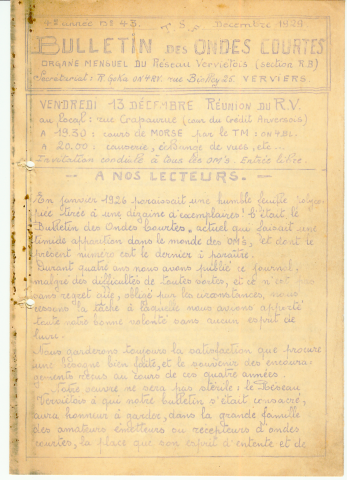 4e année No 43. T.S.F. Décembre 1929
BULLETIN DES ONDES COURTES
ORGANE MENSUEL DU Réseau Verviétois (section R.B)
Secrétariat: R. Goka ON4RV. rue Bidaut 25. VERVIERS.
VENDREDI 13 DÉCEMBRE RÉUNION DU R.V.
au local: rue Crapaurue (cour du Crédit Anversois)
A 19.30: cours de MORSE par le TM:
A 20.00: causerie, échange de vues, etc...
Invitation cordiale à tous les OM's. Entrée libre.
- A NOS LECTEURS. -
En janvier 1926 paraissait une humble feuille
tirée à une dizaine d'exemplaires: c'était le
Bulletin des Ondes Courtes, actuel qui faisait une
timide apparition dans le monde des OM's, et dont le
présent numéro est le dernier à paraître.
Durant quatre ans nous avons publié ce journal,
malgré des difficultés de toutes sortes, et ce n'est
sans regret que, obligé par les circonstances, nous
cessons la tâche à laquelle nous avions apporté
toute notre bonne volonté sans aucun esprit de
lucre.
Nous garderons toujours la satisfaction que procure
une besogne bien faite, et le souvenir des encoura-
gements reçus au cours de ces quatre années.
Notre œuvre ne sera pas stérile: le Réseau
Verviétois à qui notre bulletin s'était consacré,
aura honneur à garder, dans la grande famille
des amateurs émetteurs ou récepteurs d'ondes
courtes, la place que son esprit d'entente et de